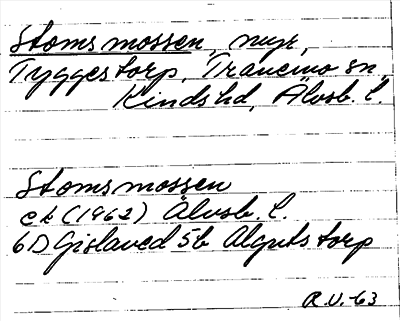 Stomsmossen, myr,
Tyggestorp, Tranemo sn,
Kinds hd, Älvsb. l.
Stomsmossen
ek (1962) Älvsb. l.
6D Gislaved 5b Algutstorp
R.V. -63